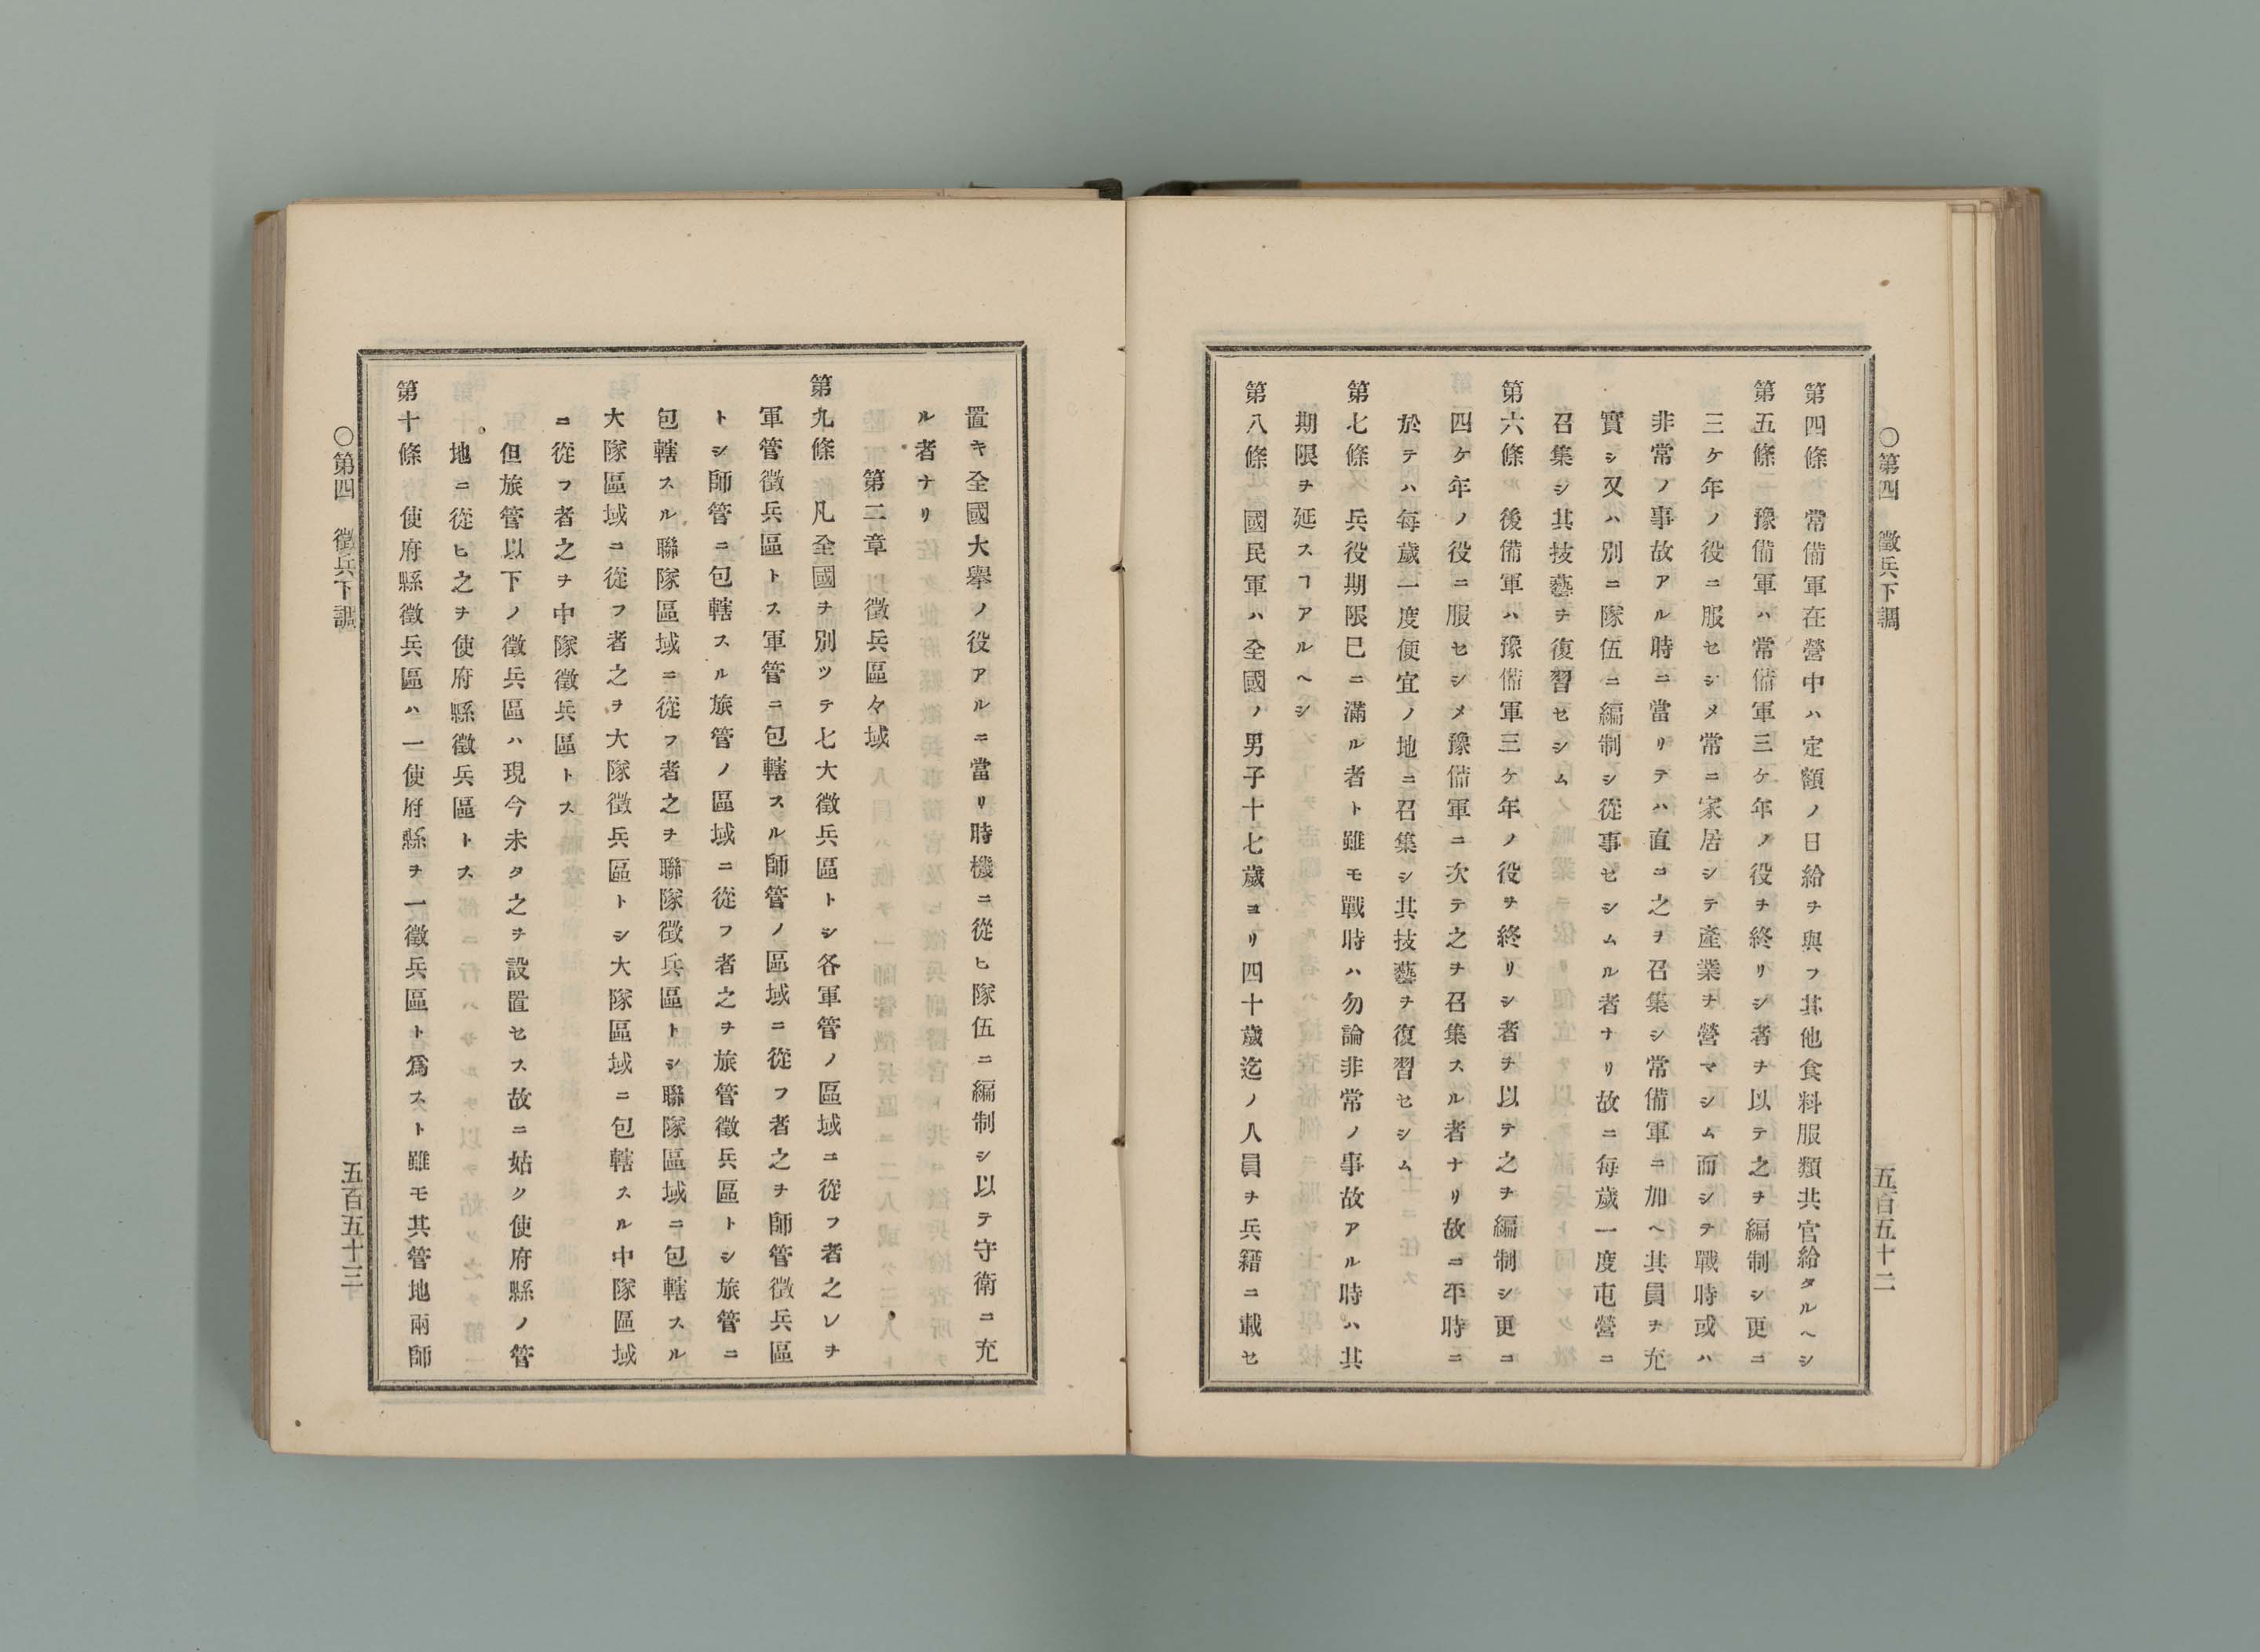 ○第四　徵兵下調　五百五十二
第四條　常備軍在營中ハ定額ノ日給ヲ與フ其他食料服類共官給タルヘシ
第五條　豫備軍ハ常備軍三ケ年ノ役ヲ終リシ者ヲ以テ之ヲ編制シ更ニ
三ケ年ノ役ニ服セシメ常ニ家居シテ產業ヲ營マシム而シテ戰時或ハ
非常ノ事故アル時ニ當リテハ直ニ之ヲ召集シ常備軍ニ加ヘ其員ヲ充
實シ又ハ別ニ隊伍ニ編制シ從事セシムル者ナリ故ニ每歲一度屯營ニ
召集シ其技藝ヲ復習セシム
第六條　後備軍ハ豫備軍三ケ年ノ役ヲ終リシ者ヲ以テ之ヲ編制シ更ニ
四ケ年ノ役ニ服セシメ豫備軍ニ次テ之ヲ召集スル者ナリ故ニ平時ニ
於テハ每歲一度便宜ノ地ニ召集シ其技藝ヲ復習セシム
第七條　兵役期限已ニ滿ル者ト雖モ戰時ハ勿論非常ノ事故アル時ハ其
期限ヲ延スヿアルヘシ
第八條　國民軍ハ全國ノ男子十七歲ヨリ四十歲迄ノ人員ヲ兵籍ニ載セ
置キ全國大擧ノ役アルニ當リ時機ニ從ヒ隊伍ニ編制シ以テ守衛ニ充
ル者ナリ
第二章　徵兵區々域
第九條　凡全國ヲ別ツテ七大徵兵區トシ各軍管ノ區域ニ從フ者之レヲ
軍管徵兵區トス軍管ニ包轄スル師管ノ區域ニ從フ者之ヲ師管徵兵區
トシ師管ニ包轄スル旅管ノ區域ニ從フ者之ヲ旅管徵兵區トシ旅管ニ
包轄スル聯隊區域ニ從フ者之ヲ聯隊徵兵區トシ聯隊區域ニ包轄スル
大隊區域ニ從フ者之ヲ大隊徵兵區トシ大隊區域ニ包轄スル中隊區域
ニ從フ者之ヲ中隊徵兵區トス
但旅管以下ノ徵兵區ハ現今未タ之ヲ設置セス故ニ姑ク使府縣ノ管
地ニ從ヒ之ヲ使府縣徵兵區トス
第十條　使府縣徵兵區ハ一使府縣ヲ一徵兵區ト爲スト雖モ其管地兩師
○第四　徵兵下調　五百五十三